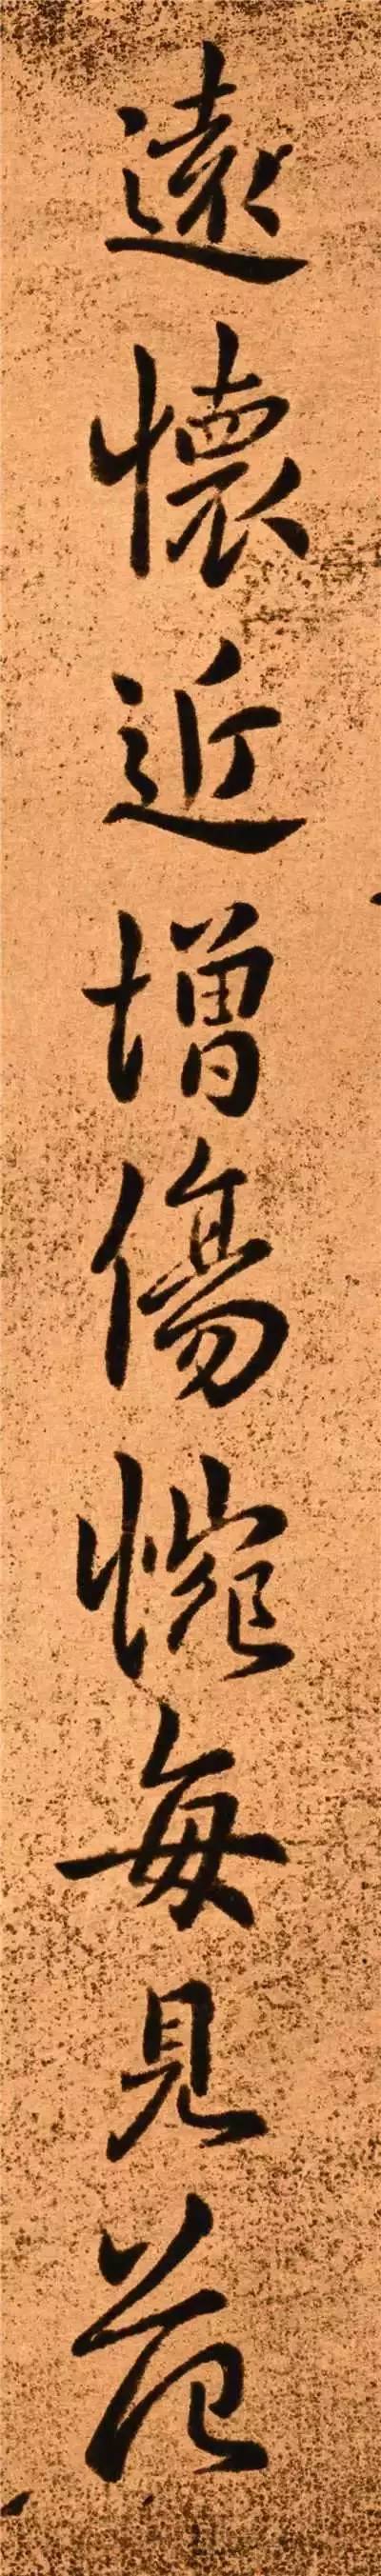 遠懷近增傷惋每見